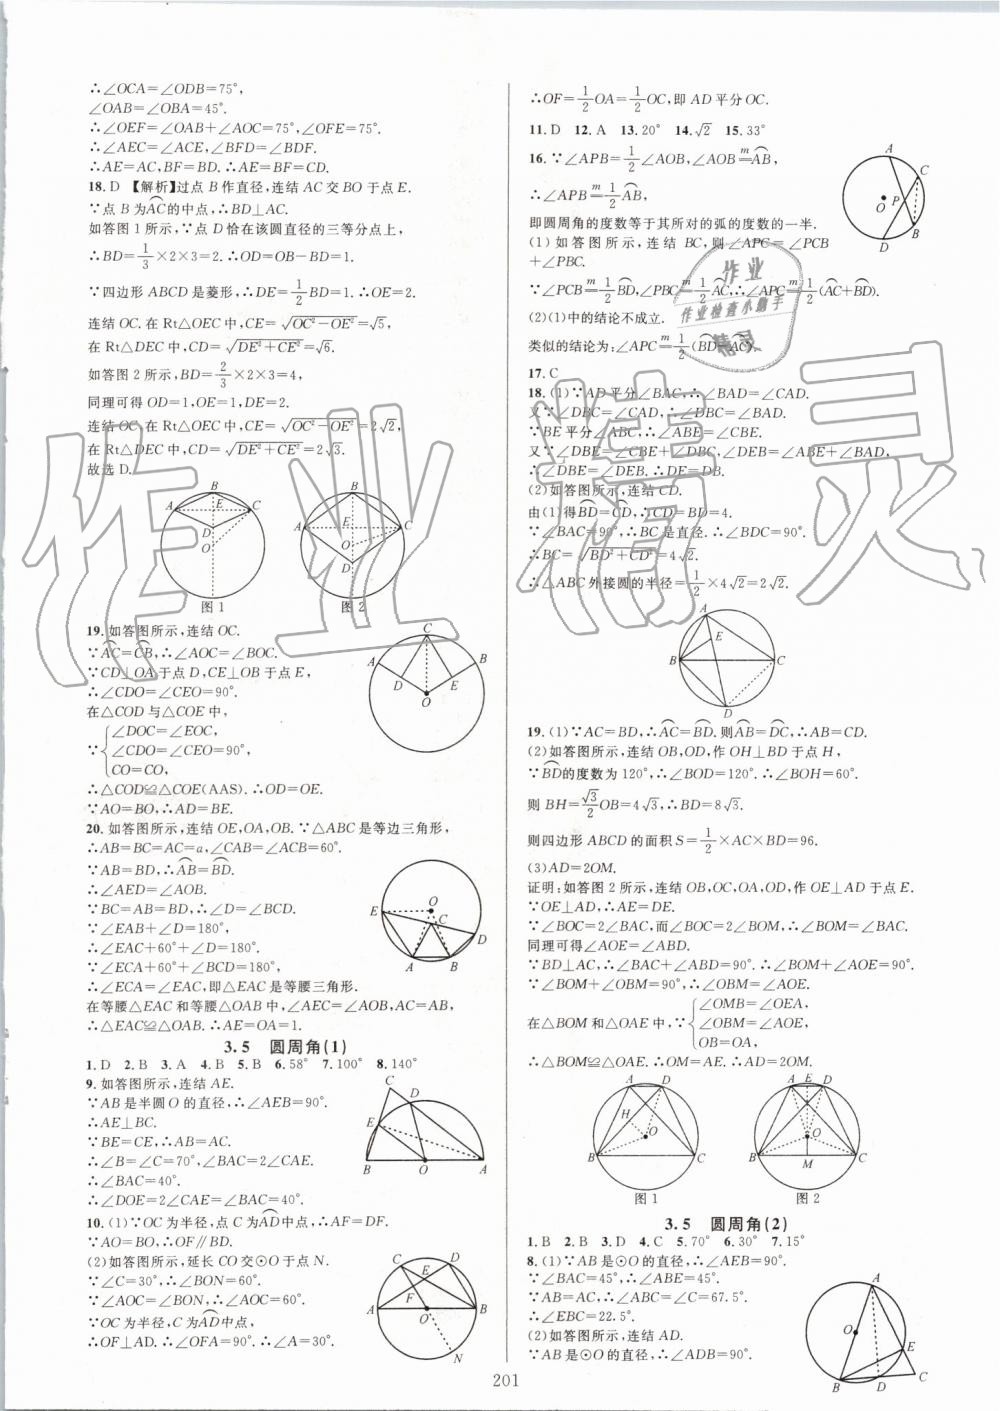 ∴∠OCA=∠ODB=75°,
∠OAB=∠OBA=45°.
∴∠OEF=∠OAB+∠AOC=75°,∠OFE=75°.
∴∠AEC=∠ACE,∠BFD=∠BDF.
∴AE=AC,BF=BD.∴AE=BF=CD.
18. D 【解析】过点 B 作直径,连结 AC 交 BO 于点 E.
∵点 B 为AC⌒的中点,∴BD⊥AC.
如答图 1 所示,∵点 D 恰在该圆直径的三等分点上,
∴BD=1/3×2×3=2.∴OD=OB-BD=1.
∵四边形 ABCD 是菱形,∴DE=1/2BD=1.∴OE=2.
连结 OC. 在 Rt△OEC 中,CE=√(OC²-OE²)=√5,
在 Rt△DEC 中,CD=√(DE²+CE²)=√6.
如答图 2 所示,BD=2/3×2×3=4,
同理可得 OD=1,OE=1,DE=2.
连结 OC. 在 Rt△OEC 中,CE=√(OC²-OE²)=2√2,
在 Rt△DEC 中,CD=√(DE²+CE²)=2√3.
故选 D.
B B
A E C A E C
D O
O D
图 1 图 2
19. 如答图所示,连结 OC.
∵AC⌒=CB⌒,∴∠AOC=∠BOC.
∵CD⊥OA 于点 D,CE⊥OB 于点 E,
∴∠CDO=∠CEO=90°.
在△COD 与△COE 中,
∵{∠DOC=∠EOC,
∠CDO=∠CEO=90°,
CO=CO,
∴△COD≌△COE(AAS).∴OD=OE.
∵AO=BO,∴AD=BE.
C
A B
D E
O
20. 如答图所示,连结 OE,OA,OB.∵△ABC 是等边三角形,
∴AB=BC=AC=a,∠CAB=∠ACB=60°.
∵AB=BD,∴AB⌒=BD⌒.
∴∠AED=∠AOB.
∵BC=AB=BD,∴∠D=∠BCD.
∵∠EAB+∠D=180°,
∴∠EAC+60°+∠D=180°.
∵∠ECA+60°+∠BCD=180°,
∴∠ECA=∠EAC,即△EAC 是等腰三角形.
在等腰△EAC 和等腰△OAB 中,∠AEC=∠AOB,AC=AB,
∴△EAC≌△OAB.∴AE=OA=1.
E O
C
D
A B
3.5 圆周角(1)
1. D 2. B 3. A 4. B 5. B 6. 58° 7. 100° 8. 140°
9. 如答图所示,连结 AE.
∵AB 是半圆 O 的直径,∴∠AEB=90°.
∴AE⊥BC.
∵BE=CE,∴AB=AC.
∴∠B=∠C=70°,∠BAC=2∠CAE.
∴∠BAC=40°.
∴∠DOE=2∠CAE=∠BAC=40°.
C
D
E
B O A
10. (1)∵OC 为半径,点 C 为AD⌒中点,∴AF=DF.
∵AO=BO,∴OF∥BD.
(2)如答图所示,延长 CO 交⊙O 于点 N.
∵∠C=30°,∴∠BON=60°.
∵∠AOC=∠BON,∴∠AOC=60°.
∵OC 为半径,C 为AD⌒中点,
∴OF⊥AD.∴∠OFA=90°.∴∠A=30°.
C D
E
F
A O B
N
∴OF=1/2OA=1/2OC,即 AD 平分 OC.
11. D 12. A 13. 20° 14. √2 15. 33°
16. ∵∠APB=1/2∠AOB,∠AOB m= AB⌒,
∴∠APB m= 1/2AB⌒,
即圆周角的度数等于其所对的弧的度数的一半.
(1) 如答图所示,连结 BC,则∠APC=∠PCB
+∠PBC.
∵∠PCB m= 1/2BD⌒,∠PBC m= 1/2AC⌒,∴∠APC m= 1/2(AC⌒+BD⌒).
(2)(1)中的结论不成立.
类似的结论为:∠APC m= 1/2(BD⌒-AC⌒).
A
C
P
O
B
D
17. C
18. (1)∵AD 平分∠BAC,∴∠BAD=∠CAD.
又∵∠DBC=∠CAD,∴∠DBC=∠BAD.
∵BE 平分∠ABC,∴∠ABE=∠CBE.
又∵∠DBE=∠CBE+∠DBC,∠DEB=∠ABE+∠BAD,
∴∠DBE=∠DEB.∴DE=DB.
(2)如答图所示,连结 CD.
由(1)得BD⌒=CD⌒,∴CD=BD=4.
∵∠BAC=90°,∴BC 是直径.∴∠BDC=90°.
∴BC=√(BD²+CD²)=4√2.
∴△ABC 外接圆的半径=1/2×4√2=2√2.
A
E
B C
D
19. (1)∵AC=BD,∴AC⌒=BD⌒.则AB⌒=DC⌒,∴AB=CD.
(2)如答图所示,连结 OB,OD,作 OH⊥BD 于点 H,
∵BD⌒的度数为 120°,∴∠BOD=120°.∴∠BOH=60°.
则 BH=√3/2OB=4√3,∴BD=8√3.
则四边形 ABCD 的面积 S=1/2×AC×BD=96.
(3)AD=2OM.
证明:如答图 2 所示,连结 OB,OC,OA,OD,作 OE⊥AD 于点 E.
∵OE⊥AD,∴AE=DE.
∵∠BOC=2∠BAC,而∠BOC=2∠BOM,∴∠BOM=∠BAC.
同理可得∠AOE=∠ABD.
∵BD⊥AC,∴∠BAC+∠ABD=90°.∴∠BOM+∠AOE=90°.
∵∠BOM+∠OBM=90°,∴∠OBM=∠AOE.
在△BOM 和△OAE 中,∵{∠OMB=∠OEA,
∠OBM=∠AOE,
OB=OA,
∴△BOM≌△OAE.∴OM=AE.∴AD=2OM.
A D A E D
H
O O
B C B M C
图 1 图 2
3.5 圆周角(2)
1. B 2. B 3. D 4. C 5. 70° 6. 30° 7. 15°
8. (1)∵AB 是⊙O 的直径,∴∠AEB=90°.
∵∠BAC=45°,∴∠ABE=45°.
∵AB=AC,∴∠ABC=∠C=67.5°.
∴∠EBC=22.5°.
(2)如答图所示,连结 AD.
∵AB 是⊙O 的直径,∴∠ADB=90°.
A
O
E
B D C
201
作业
作业检查小助手
精灵
作业精灵